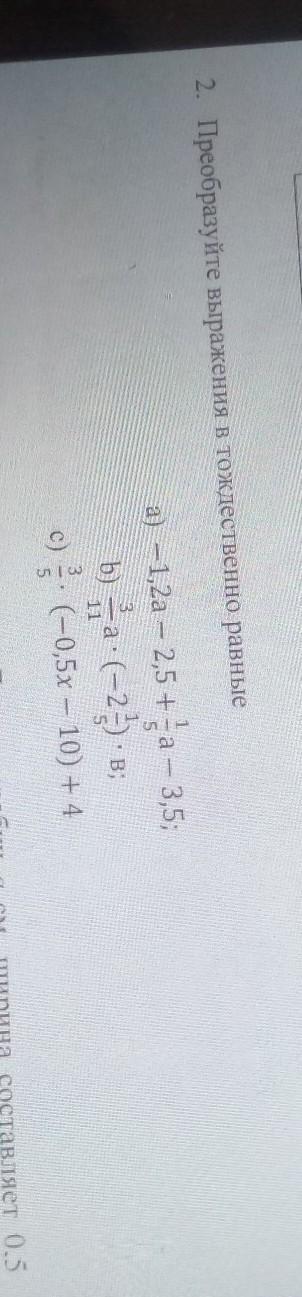 2. Преобразуйте выражения в тождественно равные
a) −1,2a − 2,5 + 1/5 a − 3,5;
b) 3/11 a · (−2 1/5) · в;
c) 3/5 · (−0,5x − 10) + 4
см, ширина составляет 0.5